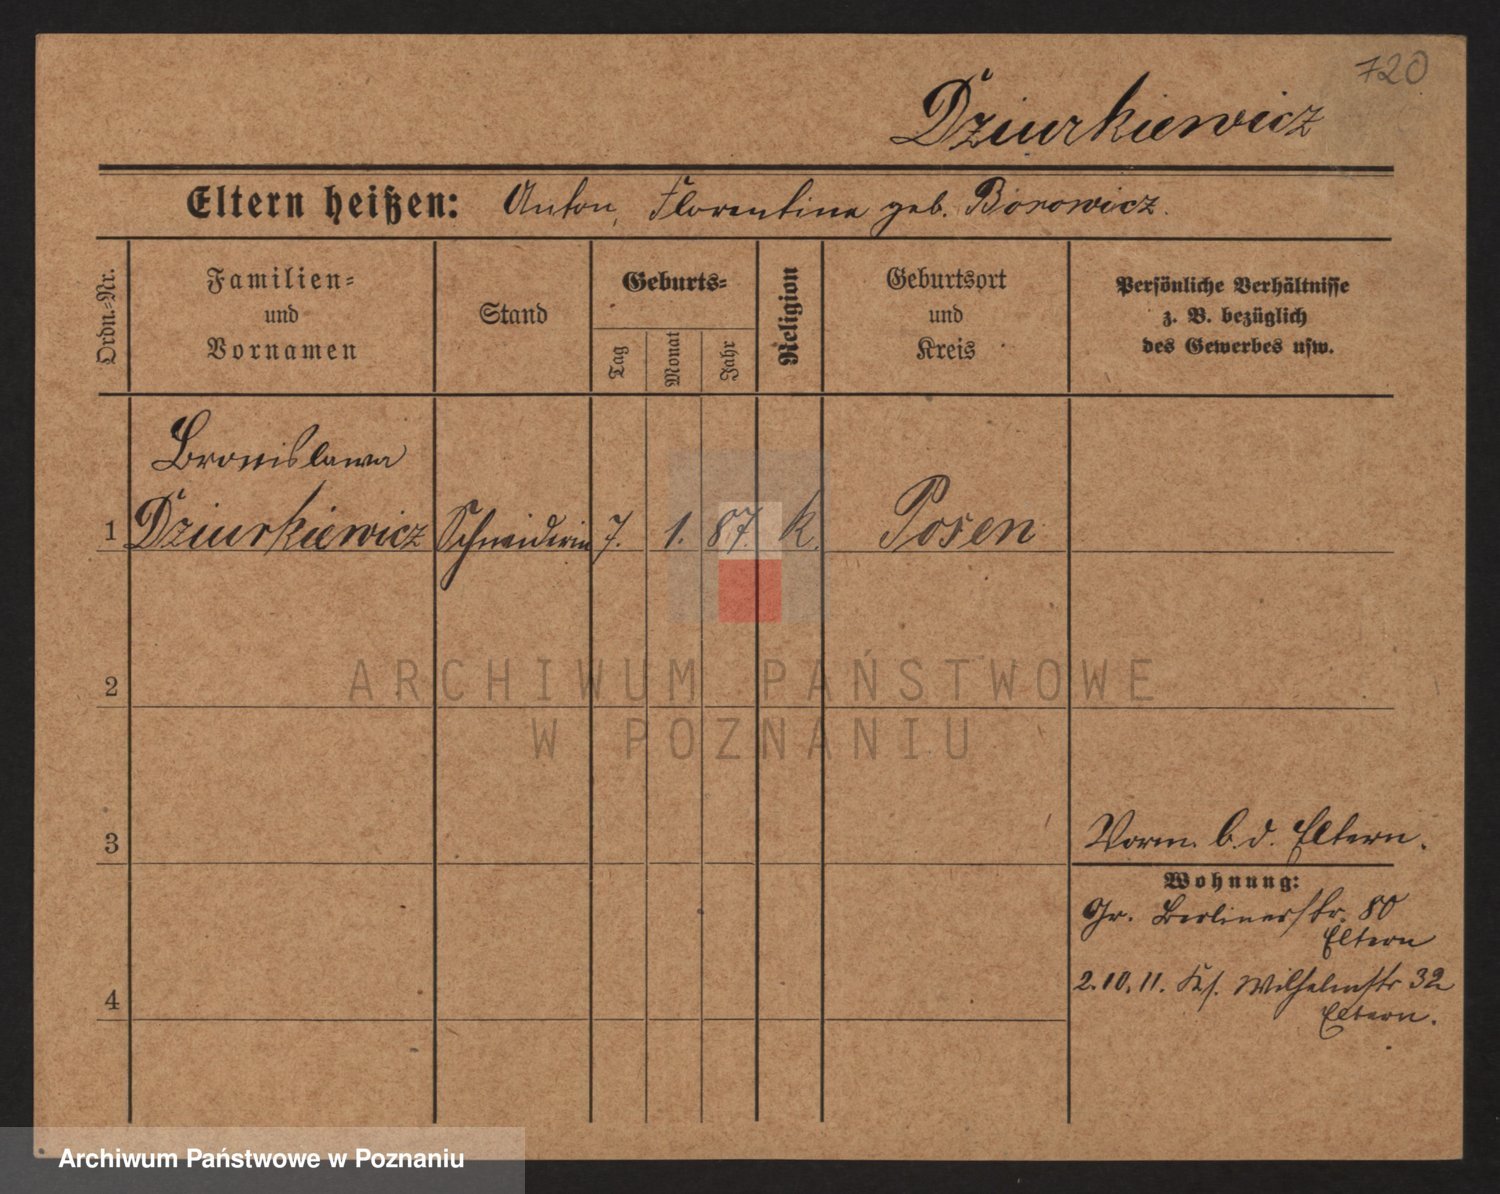 720
Dziurkiewicz
Eltern heißen: Anton, Florentina geb. Borowicz.
Ordn.-Nr.
Familien-
und
Vornamen
Stand
Geburts-
Tag
Monat
Jahr
Religion
Geburtsort
und
Kreis
Persönliche Verhältnisse
z. B. bezüglich
des Gewerbes usw.
Bronislawa
1 Dziurkiewicz Schneiderin 7. 1. 87. k. Posen
2
ARCHIWUM PAŃSTWOWE
W POZNANIU
3
Vorm. b. d. Eltern.
Wohnung:
Gr. Berlinerstr. 80
Eltern
2.10.11. Ks. Wilhelmstr 32
Eltern.
4
Archiwum Państwowe w Poznaniu